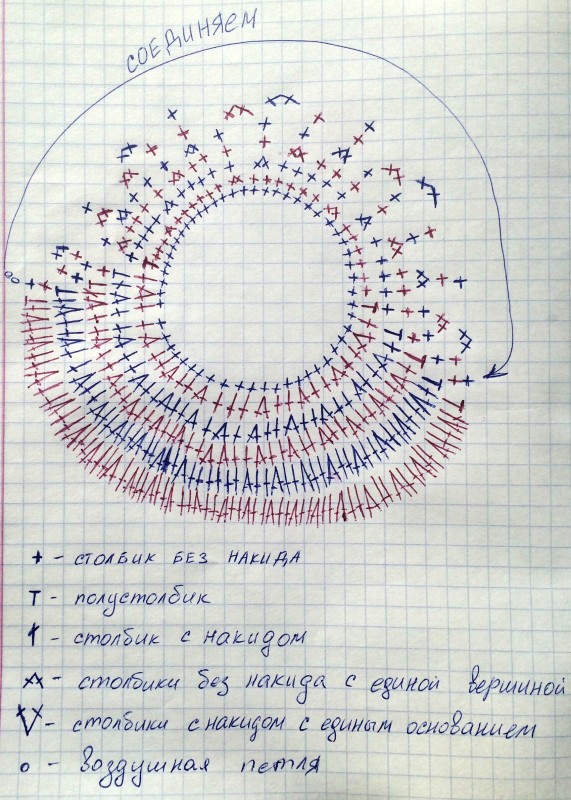 СОЕДИНЯЕМ
+ - столбик без накида
т - полустолбик
† - столбик с накидом
- столбики без накида с единой вершиной
- столбики с накидом с единым основанием
о - воздушная петля